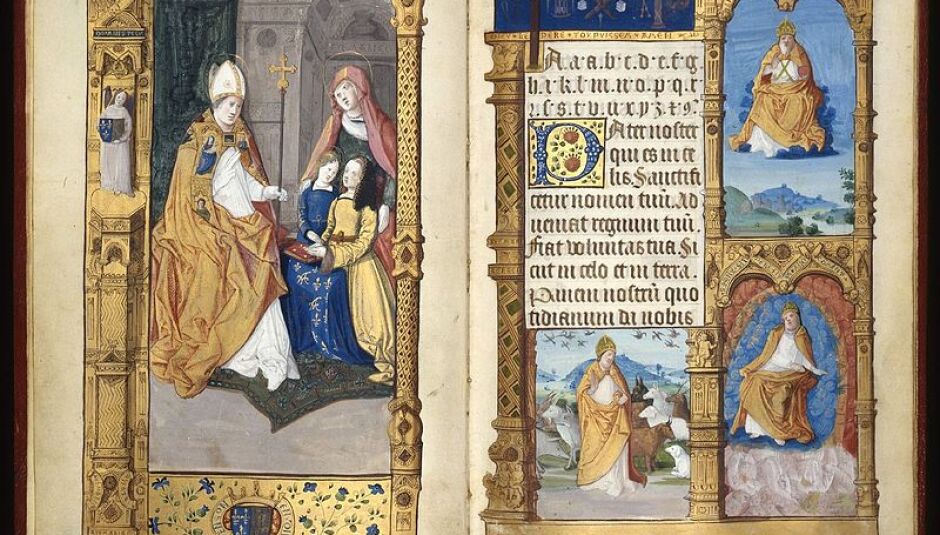 AMEN
A.a.a.b.c.d.e.f.g
h.i.k.l.m.n.o.p.q.r
s.t.v.u.x.y.z.
Pater noster
qui es in ce
lis. Sanctifi
cetur nomen tuū. Ad
ueniat regnum tuū.
Fiat voluntas tua Si
cut in celo et in terra.
Panem nostrū quo
tidianum da nobis